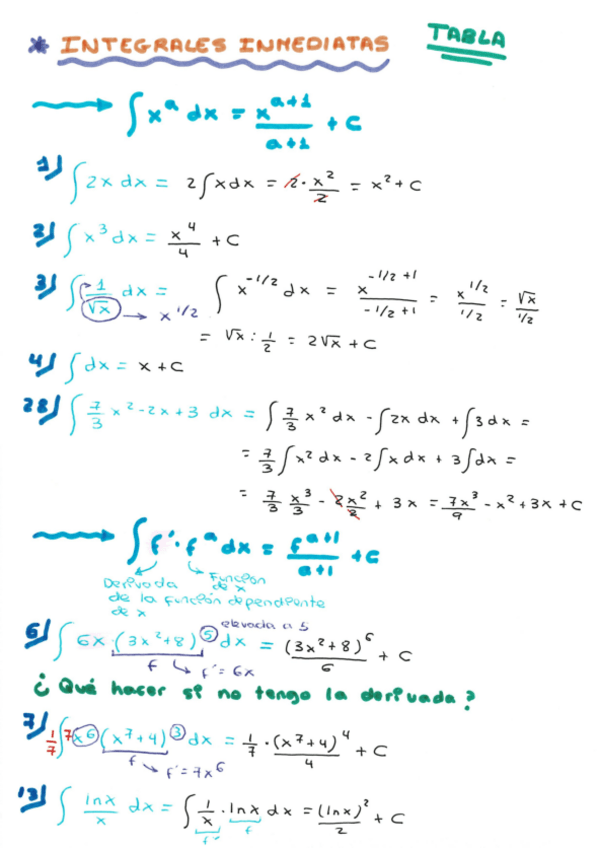 * INTEGRALES INMEDIATAS TABLA
→ ∫ x^a dx = x^(a+1)/(a+1) + C
1) ∫ 2x dx = 2∫xdx = 2 · x²/2 = x² + C
2) ∫ x³ dx = x⁴/4 + C
3) ∫ 1/√x dx = ∫ x^(-1/2) dx = x^(-1/2 +1)/(-1/2 +1) = x^(1/2)/(1/2) = √x/(1/2)
→ x^(1/2)
= √x : 1/2 = 2√x + C
4) ∫ dx = x + C
28) ∫ 7/3 x² - 2x + 3 dx = ∫ 7/3 x² dx - ∫2x dx + ∫3 dx =
= 7/3 ∫ x² dx - 2∫x dx + 3∫dx =
= 7/3 x³/3 - 2x²/2 + 3x = 7x³/9 - x² + 3x + C
→ ∫ f' · f^a dx = f^(a+1)/(a+1) + C
Derivada de la función dependiente de x
Función de x
elevada a 5
6) ∫ 6x · (3x² + 8)^5 dx = (3x² + 8)^6/6 + C
f → f' = 6x
¿Qué hacer si no tengo la derivada?
7) 1/7 ∫ 7x^6 (x^7 + 4)^3 dx = 1/7 · (x^7 + 4)^4/4 + C
f → f' = 7x^6
13) ∫ lnx/x dx = ∫ 1/x · lnx dx = (lnx)²/2 + C
f' f